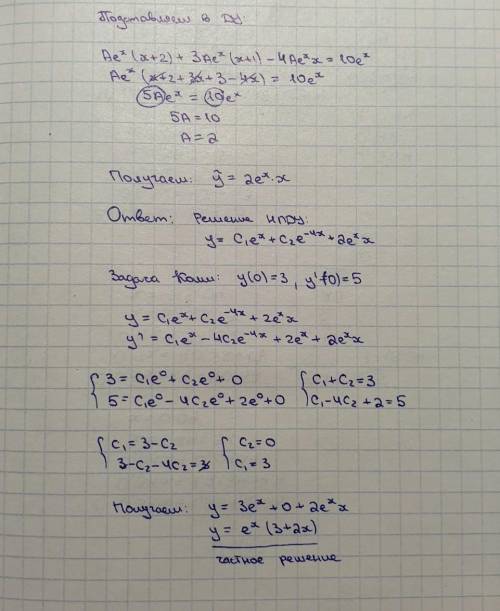 Подставляем в ДУ:
Ae^x (x+2) + 3Ae^x (x+1) - 4Ae^x x = 10e^x
Ae^x (x+2+3x+3-4x) = 10e^x
5Ae^x = 10e^x
5A = 10
A = 2
Получаем: ỹ = 2e^x·x
Ответ: решение НЛДУ:
y = C₁e^x + C₂e^-4x + 2e^x x
Задача Коши: y(0)=3, y'(0)=5
y = C₁e^x + C₂e^-4x + 2e^x x
y' = C₁e^x - 4C₂e^-4x + 2e^x + 2e^x x
{ 3 = C₁e⁰ + C₂e⁰ + 0 { C₁+C₂=3
5 = C₁e⁰ - 4C₂e⁰ + 2e⁰ + 0 C₁-4C₂+2=5
{ C₁ = 3-C₂ { C₂=0
3-C₂-4C₂=3 C₁=3
Получаем: y = 3e^x + 0 + 2e^x x
y = e^x (3+2x)
частное решение